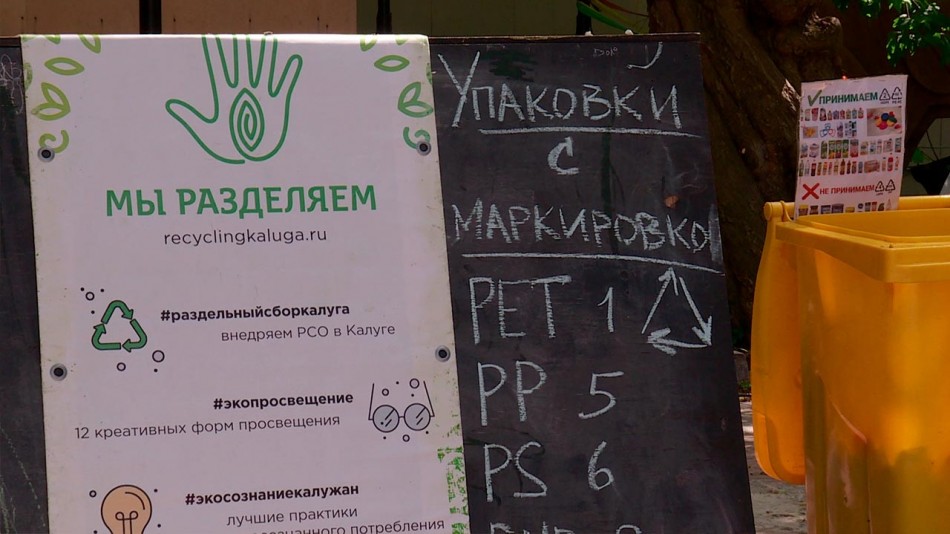 МЫ РАЗДЕЛЯЕМ
recyclingkaluga.ru
#раздельныйсборкалуга
внедряем РСО в Калуге
#экопросвещение
12 креативных форм просвещения
#экосознаниекалужан
лучшие практики
потребления
УПАКОВКИ
С
МАРКИРОВКОЙ
PET 1
PP 5
PS 6
ПРИНИМАЕМ
НЕ ПРИНИМАЕМ